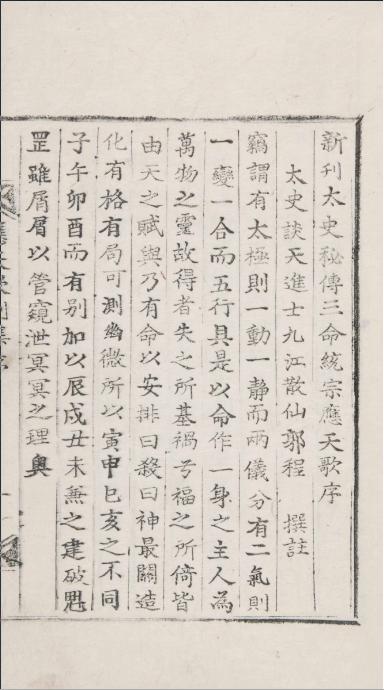 新刊太史秘傳三命統宗應天歌序
太史談天進士九江散仙郭程 撰註
竊謂有太極則一動一静而兩儀分有二氣則
一變一合而五行具是以命作一身之主人為
萬物之靈故得者失之所基禍兮福之所倚皆
由天之賦與乃有命以安排曰殺曰神最關造
化有格有局可測幽微所以寅申巳亥之不同
子午卯酉而有别加以辰戌丑未無之建破魁
罡雖屑屑以管窺泄冥冥之理奥